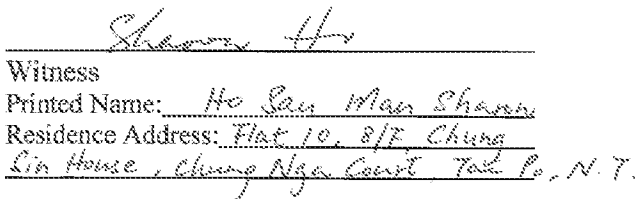 Sharon Ho
Witness
Printed Name: Ho Sau Man Sharon
Residence Address: Flat 10, 8/F, Chung
Sin House, Chung Nga Court Tai Po, N.T.